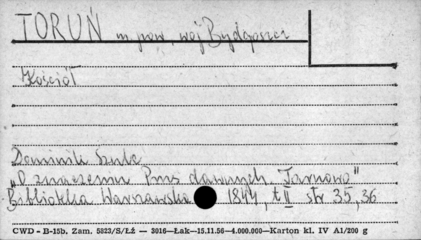 TORUŃ m. pow. woj Bydgoszcz
Kościół
Dominik Szulc
„O znaczeniu Prus dawnych, Tarnowo"
Biblioteka Warszawska 1844, t II str 35, 36
CWD - B-15b, Zam. 5823/S/ŁŻ — 3016—Łak—15.11.56—4.000.000—Karton kl. IV A1/200 g